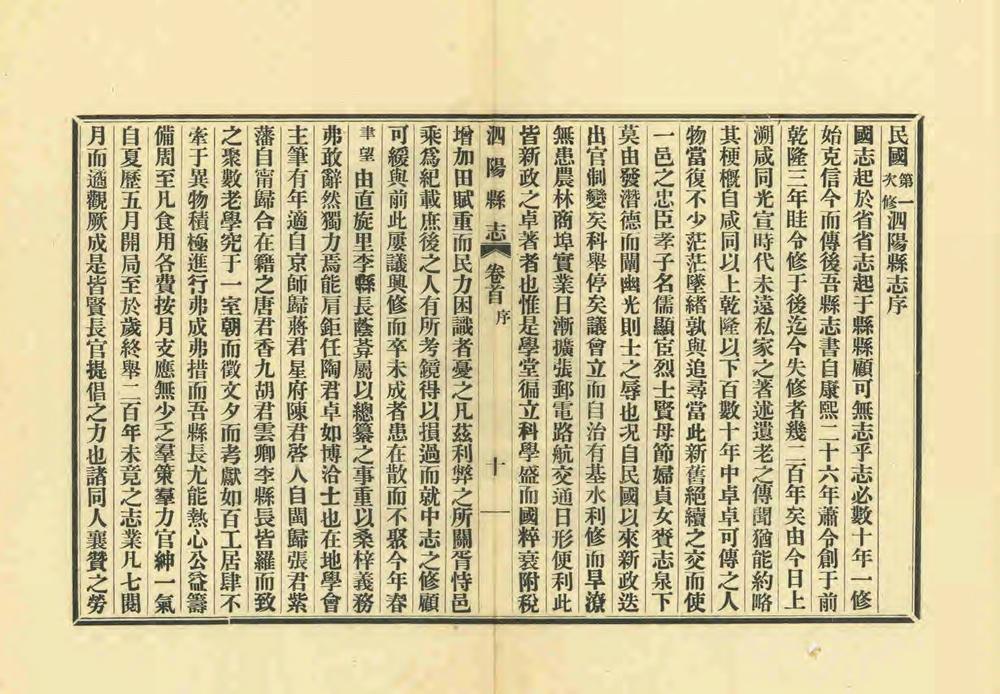 民國第一次修泗陽縣志序
國志起於省省志起于縣縣顧可無志乎志必數十年一修
始克信今而傳後吾縣志書自康熙二十六年蕭令創于前
乾隆三年眭令修于後迄今失修者幾二百年矣由今日上
溯咸同光宣時代未遠私家之著述遺老之傳聞猶能約略
其梗槪自咸同以上乾隆以下百數十年中卓卓可傳之人
物當復不少茫茫墜緒孰與追尋當此新舊絕續之交而使
一邑之忠臣孝子名儒顯宦烈士賢母節婦貞女賚志泉下
莫由發潛德而闡幽光則士之辱也況自民國以來新政迭
出官制變矣科舉停矣議會立而自治有基水利修而旱潦
無患農林商埠實業日漸擴張郵電路航交通日形便利此
皆新政之卓著者也惟是學堂徧立科學盛而國粹衰附稅
泗陽縣志 卷首 序 十一
增加田賦重而民力困識者憂之凡茲利弊之所關胥恃邑
乘爲紀載庶後之人有所考鏡得以損過而就中志之修顧
可緩與前此屢議興修而卒未成者患在散而不聚今年春
聿望由直旋里李縣長蔭葊屬以總纂之事重以桑梓義務
弗敢辭然獨力焉能肩鉅任陶君卓如博洽士也在地學會
主筆有年適自京師歸蔣君星府陳君啓人自閩歸張君紫
藩自甯歸合在籍之唐君香九胡君雲卿李縣長皆羅而致
之聚數老學究于一室朝而徵文夕而考獻如百工居肆不
牽于異物積極進行弗成弗措而吾縣長尤能熱心公益籌
備周至凡食用各費按月支應無少乏羣策羣力官紳一氣
自夏歷五月開局至於歲終舉二百年未竟之志業凡七閱
月而遹觀厥成是皆賢長官提倡之力也諸同人襄贊之勞